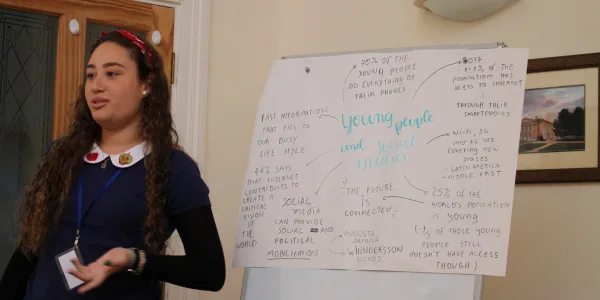 FAST INFORMATION
THAT FITS IN
OUR BUSY
LIFE STYLE
44% SAYS
THAT INTERNET
CONTRIBUTS TO
CREATE A
VISION
OF THE
WORLD
OF THE
YOUNG PEOPLE
DO EVERYTHING BY
THEIR PHONES
Young people
and social
media
SOCIAL
MEDIA
CAN PROVIDE
SOCIAL AND
POLITICAL
MOBILISATION
"THE FUTURE
IS
CONNECTED"
AUGUSTA
WHINDERSSON
NUNES
2017
OF THE
POPULATION HAS
ACCESS TO INTERNET
THROUGH THEIR
SMARTPHONES
Wi-Fi, 3G
AND 4G ARE
COVERING NEW
PLACES
- LATIN AMERICA
- MIDDLE EAST
25% OF THE
WORLD'S POPULATION
IS YOUNG
% OF YOUNG
PEOPLE STILL
DOESN'T HAVE ACCESS
THOUGH)